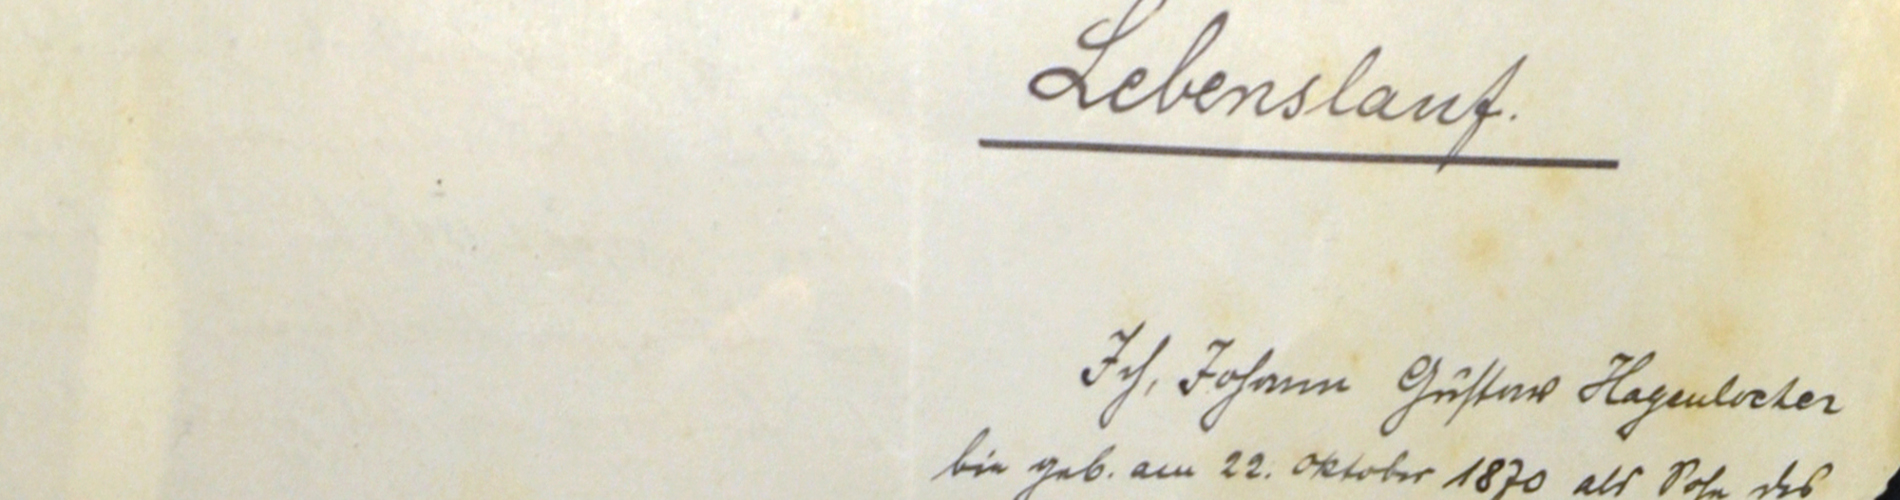 Lebenslauf.
Ich, Johann Gustav Hagenlocher
bin geb. am 22. Oktober 1870 als Sohn des